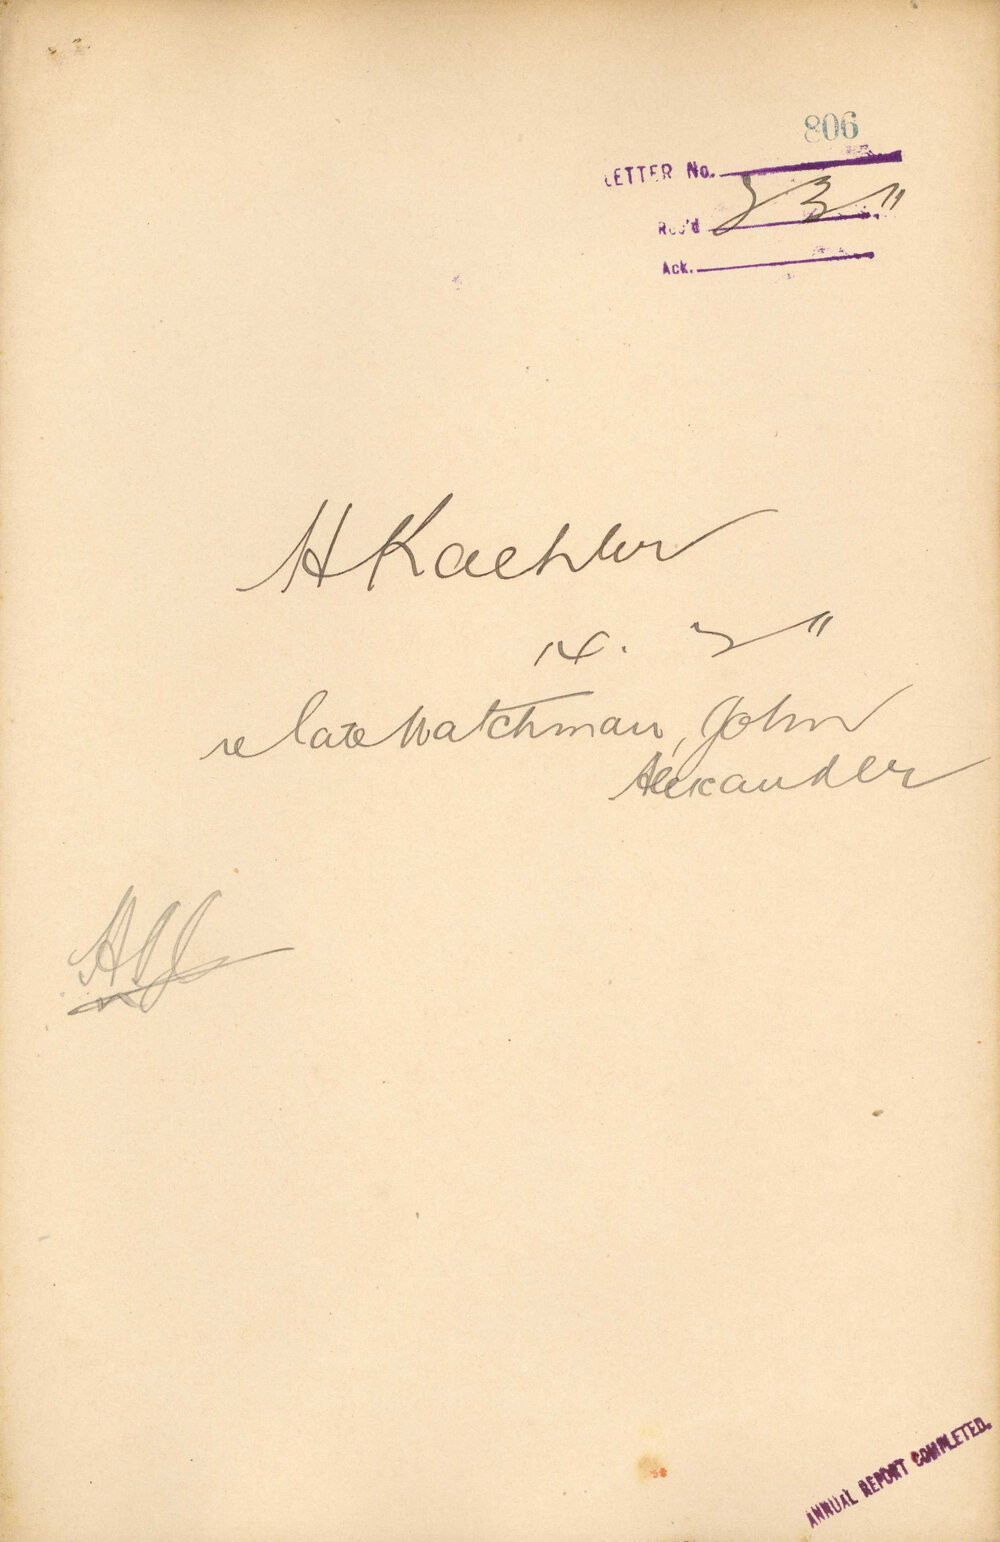 806
LETTER No.
Rec'd 3 3 11
Ack.
H Kaehler
14. 3 11
re late Watchman, John
Alexander
ANNUAL REPORT COMPLETED.